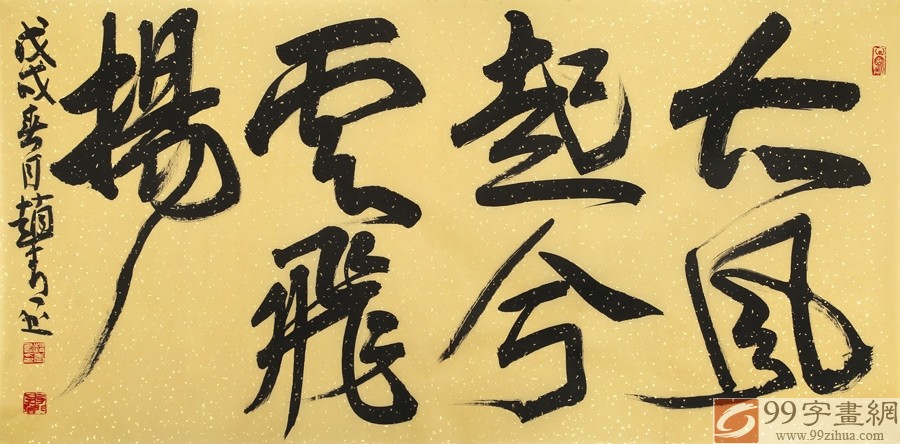 大風
起兮
雲飛
揚
戊戌春月趙
99字畫網
www.99zihua.com